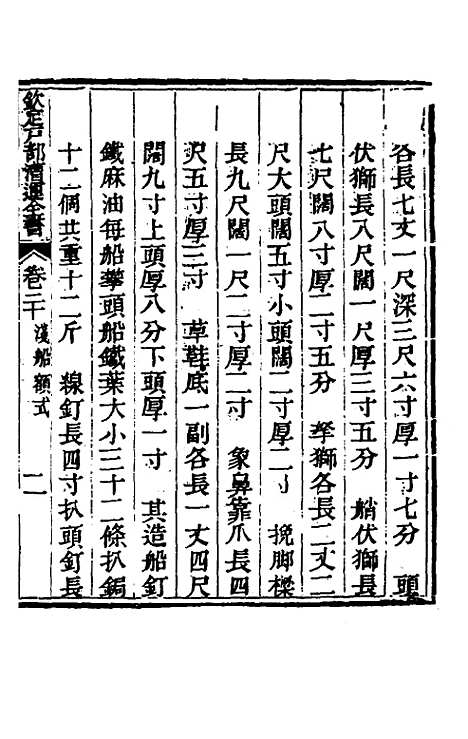 各長七丈一尺深三尺六寸厚一寸七分　頭
伏獅長八尺闊一尺厚三寸五分　艄伏獅長
七尺闊八寸厚二寸五分　拏獅各長二丈二
尺大頭闊五寸小頭闊二寸厚二寸　挽脚樑
長九尺闊一尺二寸厚二寸　象鼻靠爪長四
尺五寸厚三寸　草鞋底一副各長一丈四尺
闊九寸上頭厚八分下頭厚一寸　其造船釘
鐵麻油每船拏頭船鐵葉大小三十二條扒鋦
十二個共重十二斤　線釘長四寸扒頭釘長
欽定戶部漕運全書　卷二十　淺船額式　二